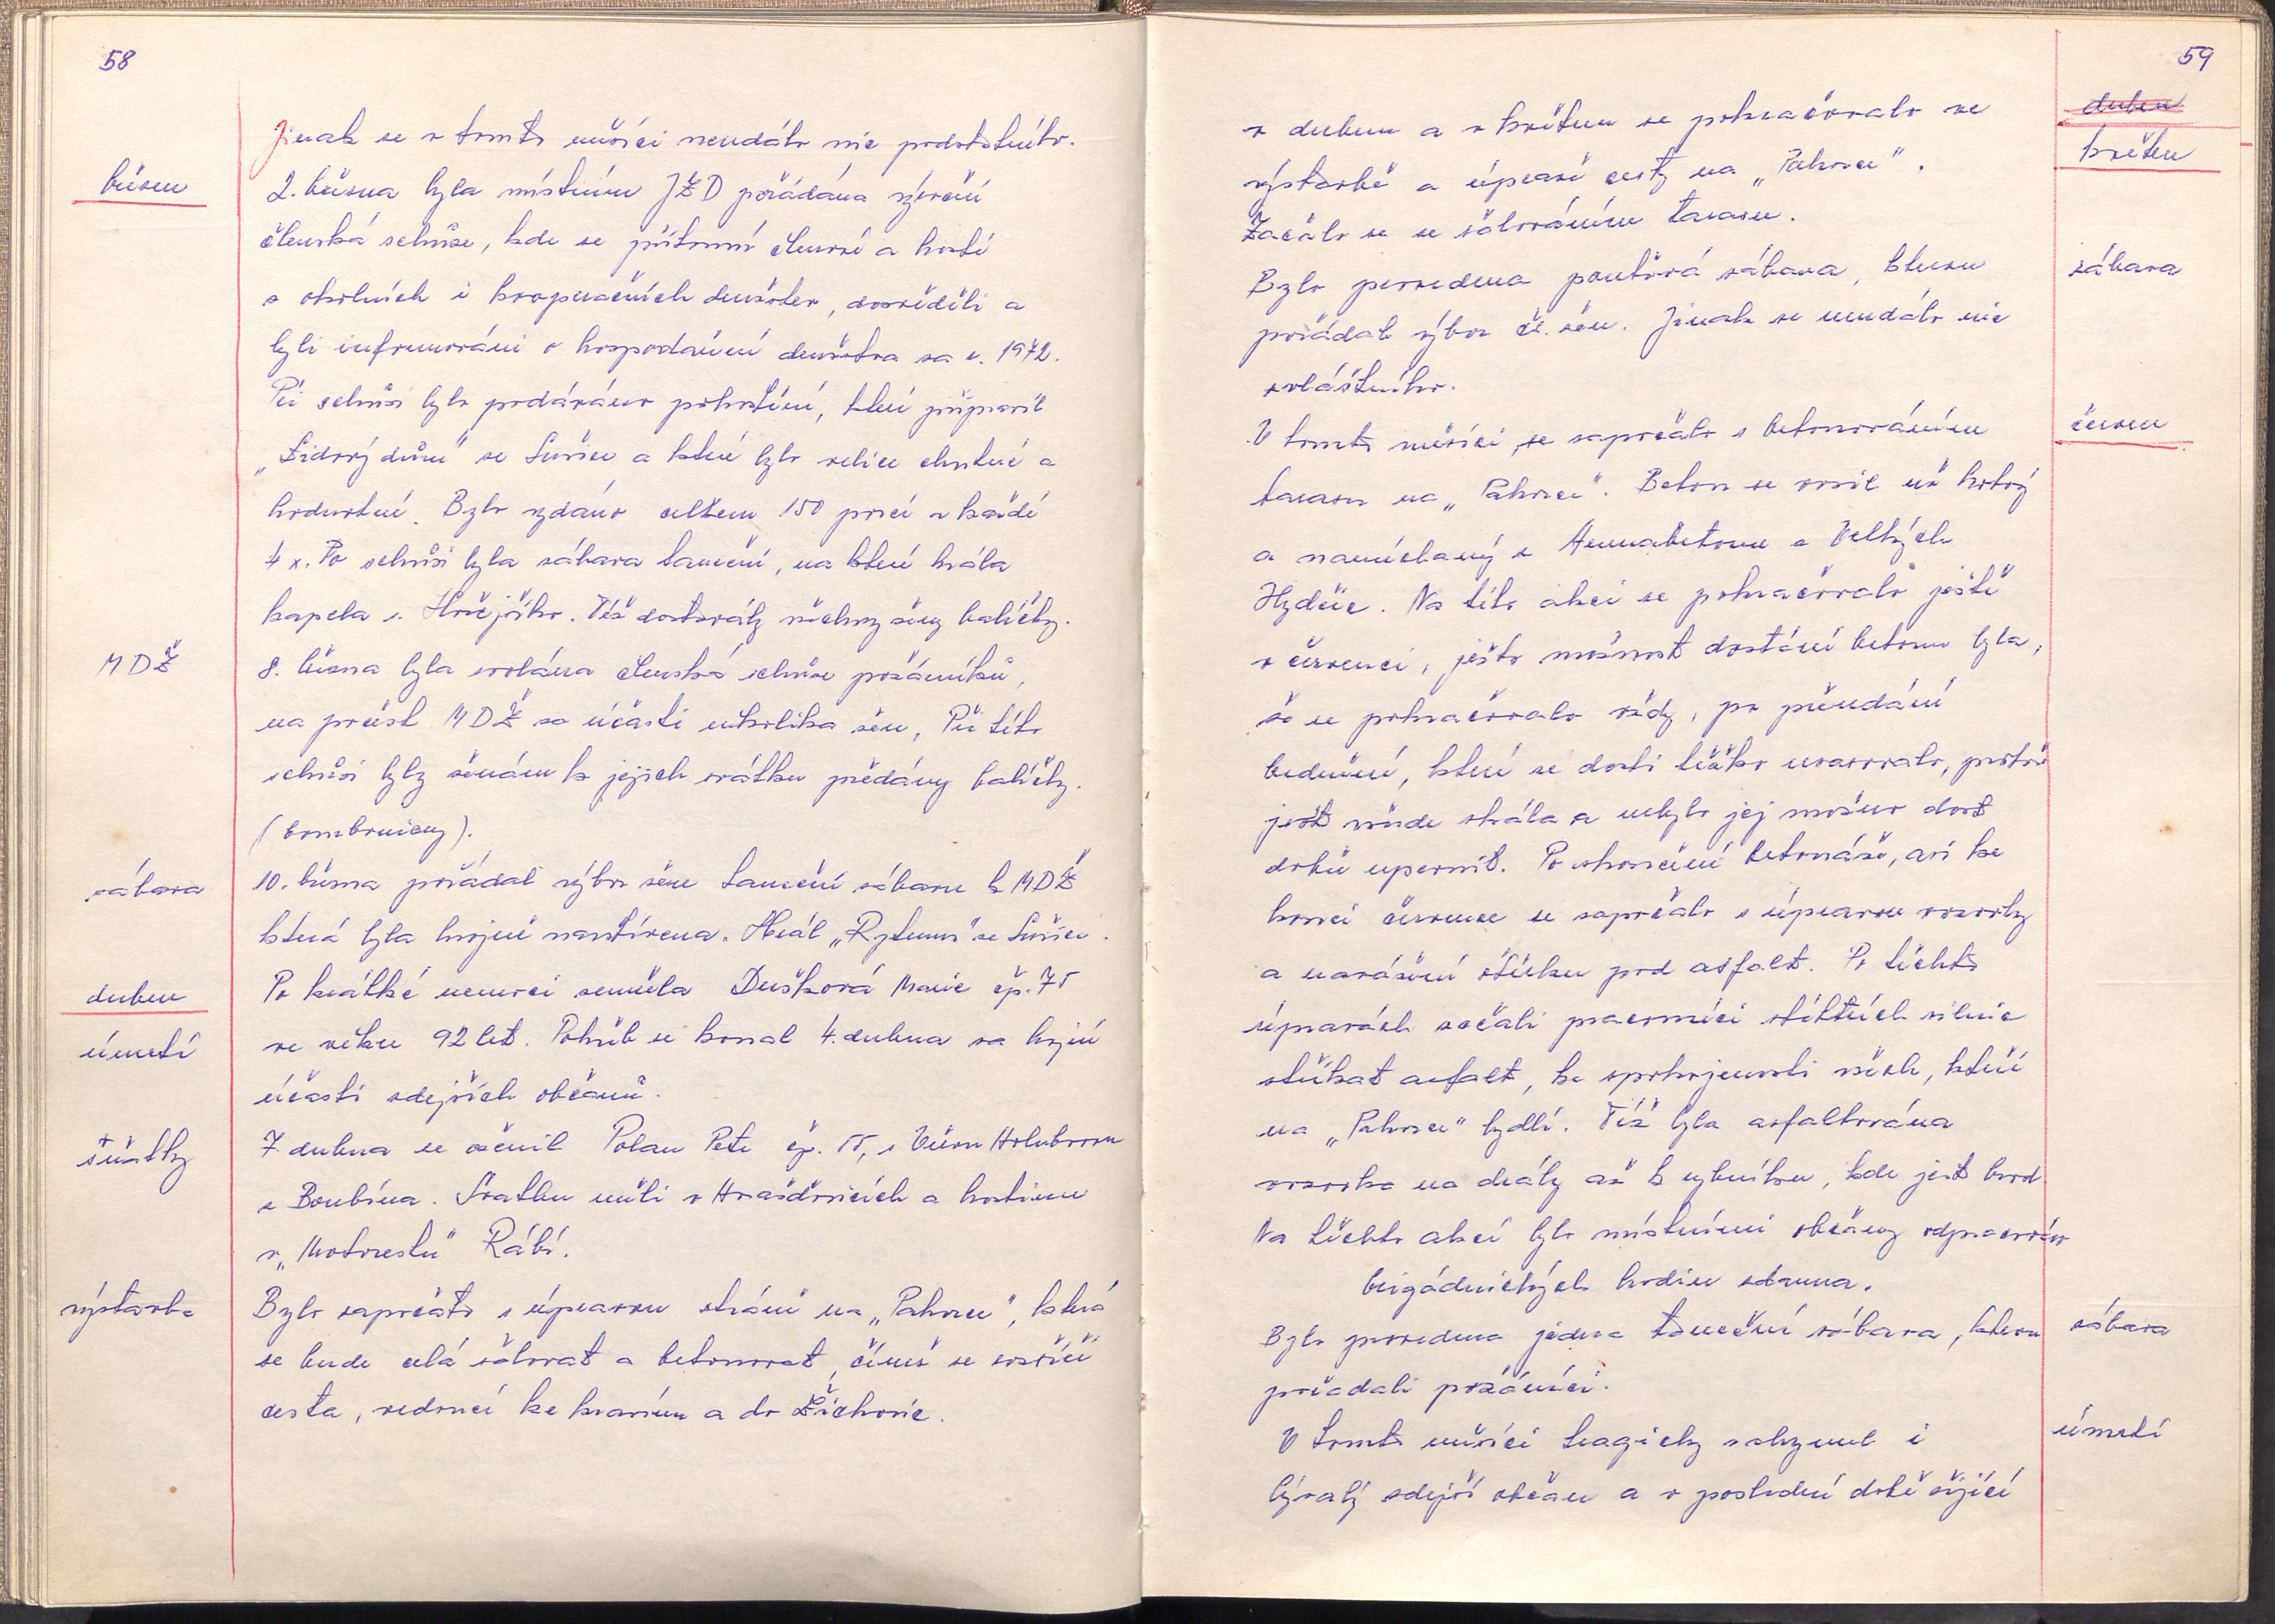 58
Jinak se v tomto měsíci neudálo nic podstatného.
březen
2. března byla místním JZD pořádána výroční
členská schůze, kde se přítomní členové a hosté
z okolních i kooperačních družstev, dozvěděli a
byli informováni o hospodaření družstva za r. 1972.
Při schůzi bylo podáváno pohoštění, které připravil
„Lidový dům" ze Sušice a které bylo velice chutné a
hodnotné. Bylo vydáno celkem 150 porcí a každé
4 x. Po schůzi byla zábava taneční, na které hrála
kapela s. Hořejšího. Též dostávaly všechny ženy balíčky.
MDŽ
8. března byla svolána členská schůze požárníků,
na počest MDŽ za účasti několika žen, Při této
schůzi byly ženám k jejich svátku předány balíčky.
(bombonieny).
zábava
10. března pořádal výbor žen taneční zábavu k MDŽ
která byla hojně navštívena. Hrál „Rytmus" ze Sušice.
duben
Po krátké nemoci zemřela Dušková Marie čp. 75
úmrtí
ve věku 92 let. Pohřeb se konal 4. dubna za hojné
účasti zdejších občanů.
sňatky
7 dubna se oženil Polan Petr čp. 55, s Věrou Holubovou
z Boubína. Svatbu měli v Hraždovicích a hostinu
v „Motorestu" Rábí.
výstavba
Bylo započato s úpravou stráně na „Pahorku", která
se bude celá šálovat a betonovat, čímž se rozšíří
cesta, vedoucí ke kravínu a do Žichovic.
59
duben
v dubnu a v květnu se pokračovalo ve
květen
výstavbě a úpravě cesty na „Pahorku".
Začalo se se šálováním tarasu.
Bylo provedena pouťová zábava, kterou
zábava
pořádal výbor čs. žen. Jinak se neudálo nic
zvláštního.
červen
V tomto měsíci se započalo s betonováním
tarasu na „Pahorku". Beton se vozil už hotový
a namíchaný z Armabetonu z Velkých
Hydčic. Na této akci se pokračovalo ještě
v červenci, ješto možnost dostání betonu byla,
že se pokračovalo vždy, po přendání
bednění, které se dosti těžko upravovalo, protože
jest všude skála a nebylo jej možno dost
dobře upevnit. Po skončení betonáže, asi ke
konci července se započalo s úpravou vozovky
a navážení štěrku pod asfalt. Po těchto
úpravách začali pracovníci státních silnic
stříkat asfalt, ke spokojenosti všech, kteří
na „Pahorku" bydlí. Též byla asfaltována
vozovka na drály až k rybníku, kde jest brod.
Na těchto akcí bylo místními občany odpracováno
brigádnických hodin zdarma.
Bylo provedena jedna taneční zábava, kterou
zábava
pořadali požárníci.
V tomto měsíci tragicky zahynul i
úmrtí
bývalý zdejší občan a v poslední době žijící